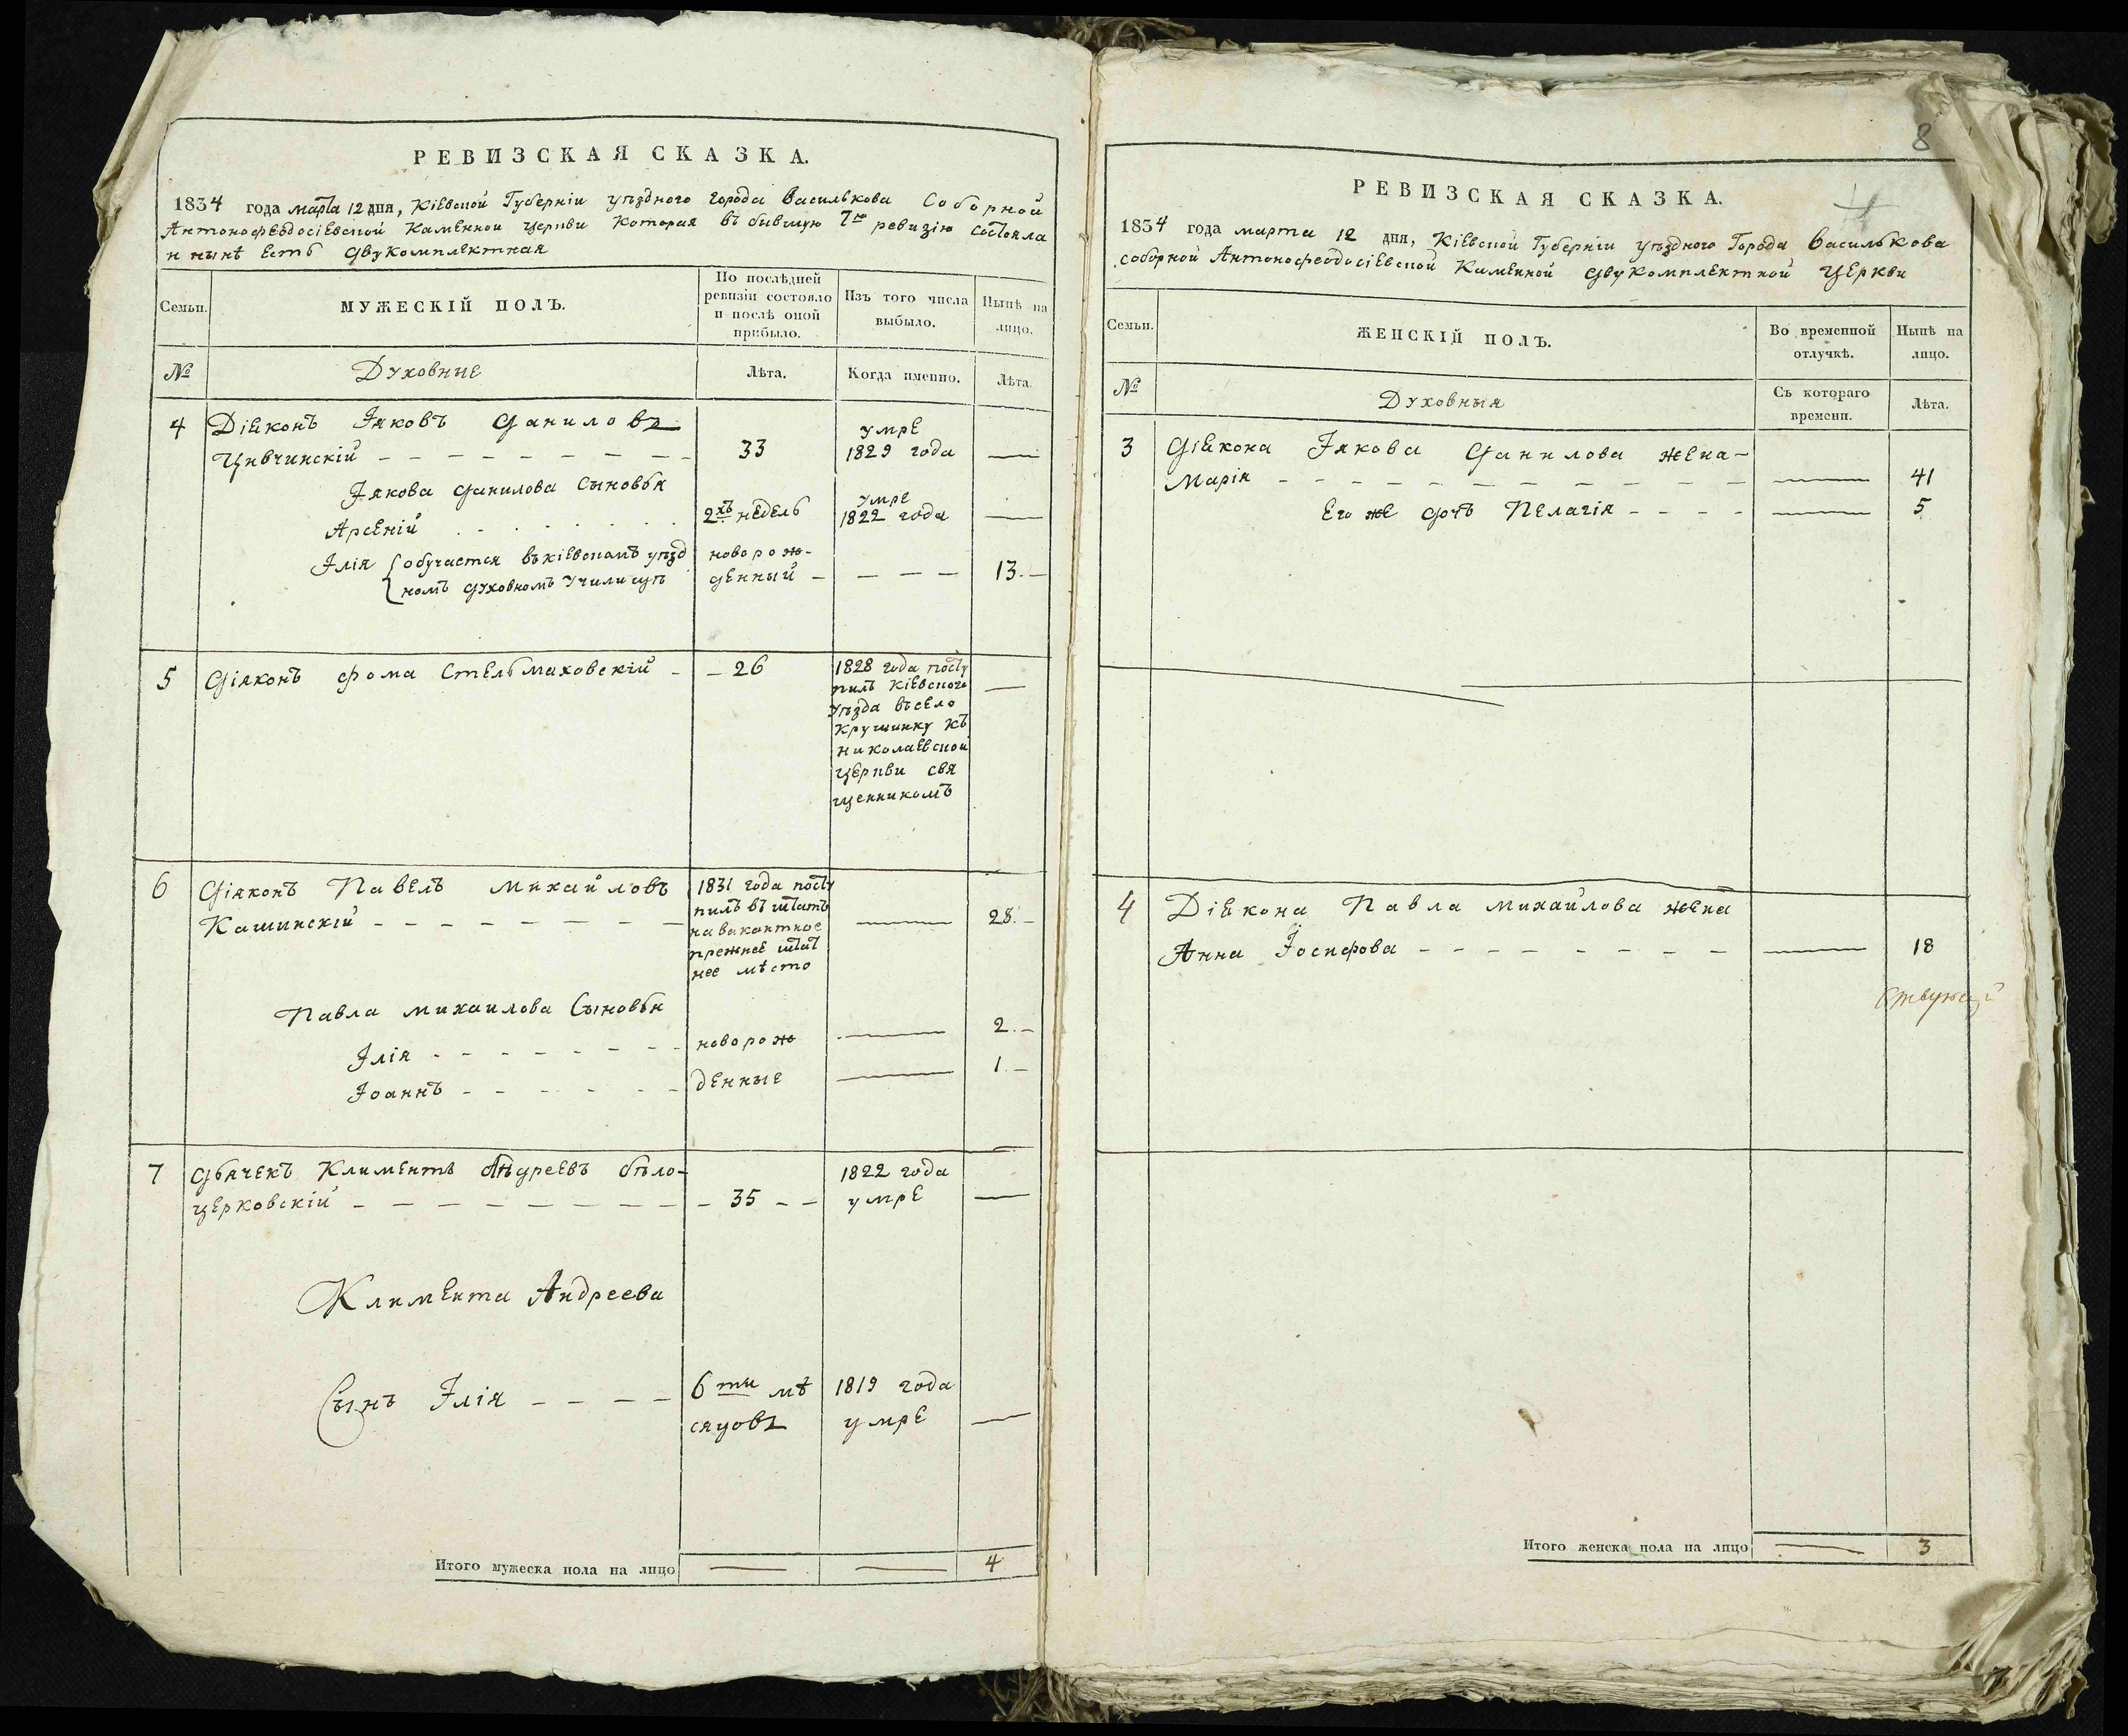 РЕВИЗСКАЯ СКАЗКА.
1834 года марта 12 дня, Кіевской Губерніи уѣзднаго города Василькова Соборной
Антонофеодосіевской Каменной церкви которая въ бывшую 7ю ревизію состояла
и нынѣ есть двукомплектная
Семьи.
МУЖЕСКІЙ ПОЛЪ.
По послѣдней
ревизіи состояло
и послѣ оной
прибыло.
Изъ того числа
выбыло.
Нынѣ на
лицо.
№
Духовные
Лѣта.
Когда именно.
Лѣта.
4 Діаконъ Іяковъ Даниловъ
Цивчинскій 33 умре
1829 года
Іякова Данилова Сыновья
Арсеній 2хъ недель умре
1822 года
Ілія обучается въ кіевскомъ уѣзд
номъ духовномъ училищѣ
новорож-
денный 13.
5 Діяконъ Фома Стельмаховскій 26
1828 года посту
пилъ Кіевского
уѣзда въ село
Крушинку къ
Николаевской
церкви свя
щенникомъ
6 Діяконъ Павелъ Михайловъ
Кашинскій
1831 года посту
пилъ въ штатъ
на вакантное
прежнее штат
нее мѣсто
28.
Павла Михаилова Сыновья
Ілія новорож 2.
Іоаннъ денные 1.
7 Дьячекъ Климентъ Андреевъ бѣло-
церковскій 35 1822 года
умре
Климента Андреева
Сынъ Ілія 6ти мѣ
сяцовъ
1819 года
умре
Итого мужеска пола на лицо 4
8
РЕВИЗСКАЯ СКАЗКА.
1834 года марта 12 дня, Кіевской Губерніи уѣзднаго Города Василькова
соборной Антонофеодосіевской Каменной двукомплектной церкви
Семьи.
ЖЕНСКІЙ ПОЛЪ.
Во временной
отлучкѣ.
Нынѣ на
лицо.
№
Духовныя
Съ котораго
времени.
Лѣта.
3 Діакона Іякова Данилова жена
Марія 41
Его же дочь Пелагія 5
4 Діакона Павла Михайлова жена
Анна Іосифова 18
Итого женска пола на лицо 3